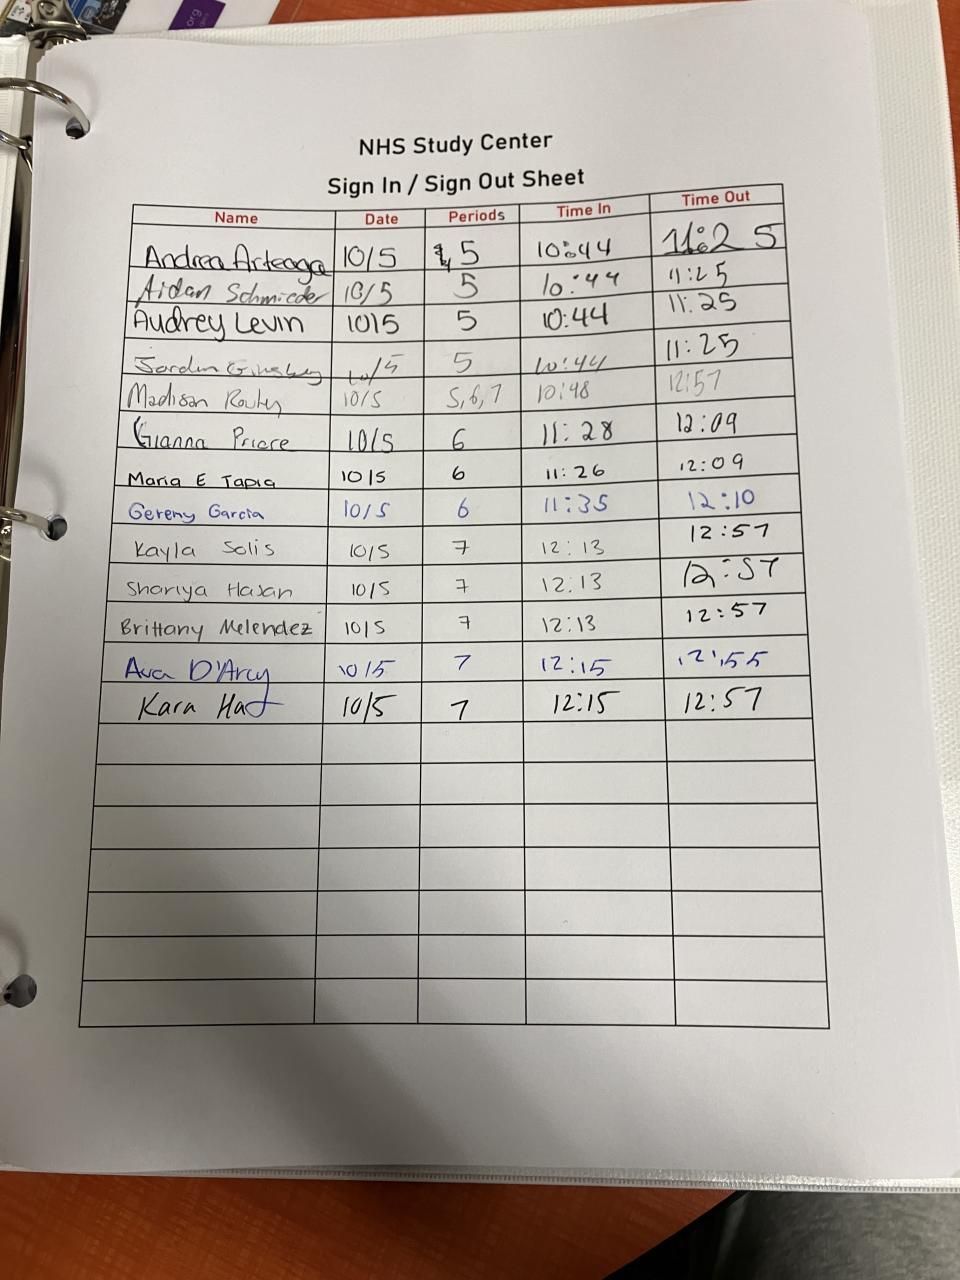 org
NHS Study Center
Sign In / Sign Out Sheet
Name Date Periods Time In Time Out
Andrea Arteaga 10/5 5 10:44 11:25
Aidan Schmieder 10/5 5 10:44 11:25
Audrey Levin 10/5 5 10:44 11:25
Jordan Ginsberg 10/5 5 10:44 11:25
Madison 10/5 5,6,7 10:48 12:57
Gianna Priore 10/5 6 11:28 12:09
Maria E Tapia 10/5 6 11:26 12:09
Gereny Garcia 10/5 6 11:35 12:10
Kayla Solis 10/5 7 12:13 12:57
Shariya Hasan 10/5 7 12:13 12:57
Brittany Melendez 10/5 7 12:13 12:57
Ava D'Arcy 10/5 7 12:15 12:55
Kara 10/5 7 12:15 12:57